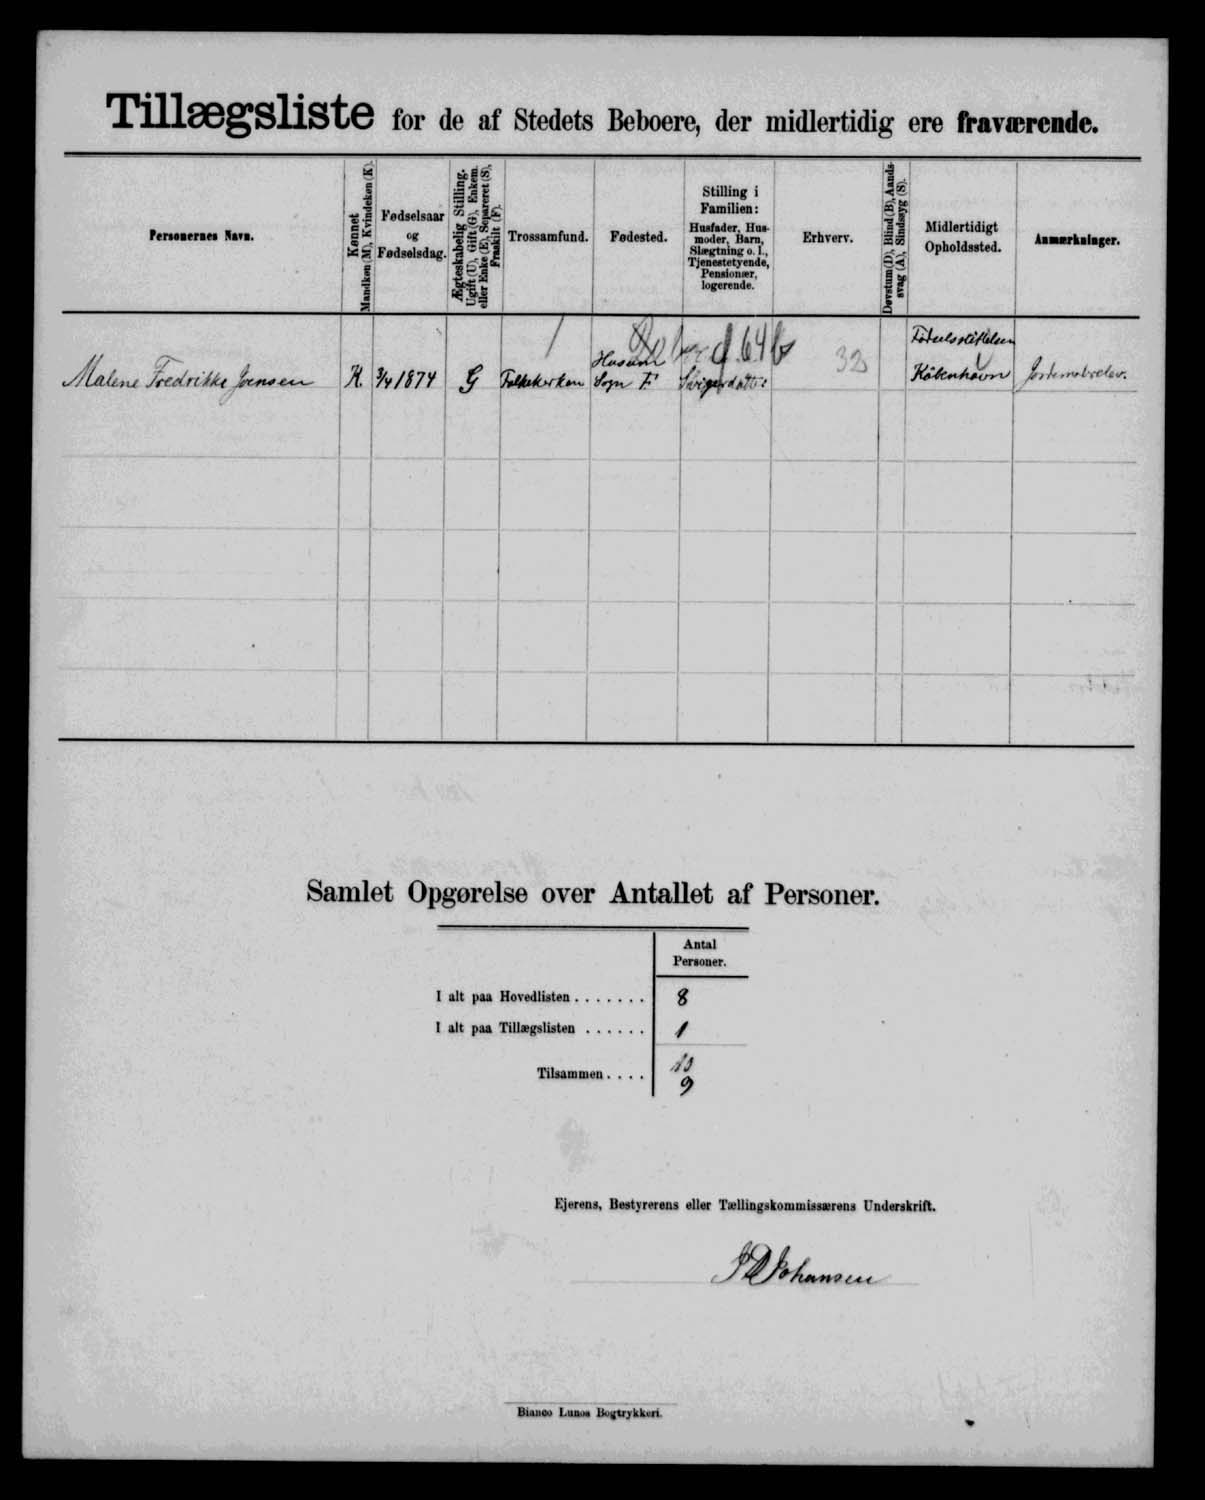 Tillægsliste for de af Stedets Beboere, der midlertidig ere fraværende.
Personernes Navn.
Kønnet
Mandkøn (M), Kvindekøn (K).
Fødselsaar
og
Fødselsdag.
Ægteskabelig Stilling.
Ugift (U), Gift (G), Enkem.
eller Enke (E), Separeret (S),
Fraskilt (F).
Trossamfund.
Fødested.
Stilling i
Familien:
Husfader, Hus-
moder, Barn,
Slægtning o. l.,
Tjenestetyende,
Pensionær,
logerende.
Erhverv.
Døvstum (D), Blind (B), Aands-
svag (A), Sindssyg (S).
Midlertidigt
Opholdssted.
Anmærkninger.
Malene Fredrikke Joensen
K.
3/4 1874
G
Folkekirken
Husum
Sogn F.
Svigerdatter
32
Fødselsstiftelsen
København
Jordemoderelev.
Samlet Opgørelse over Antallet af Personer.
Antal
Personer.
I alt paa Hovedlisten . . . . . . . 8
I alt paa Tillægslisten . . . . . . 1
Tilsammen . . . .
9
Ejerens, Bestyrerens eller Tællingskommissærens Underskrift.
Johansen
Bianco Lunos Bogtrykkeri.